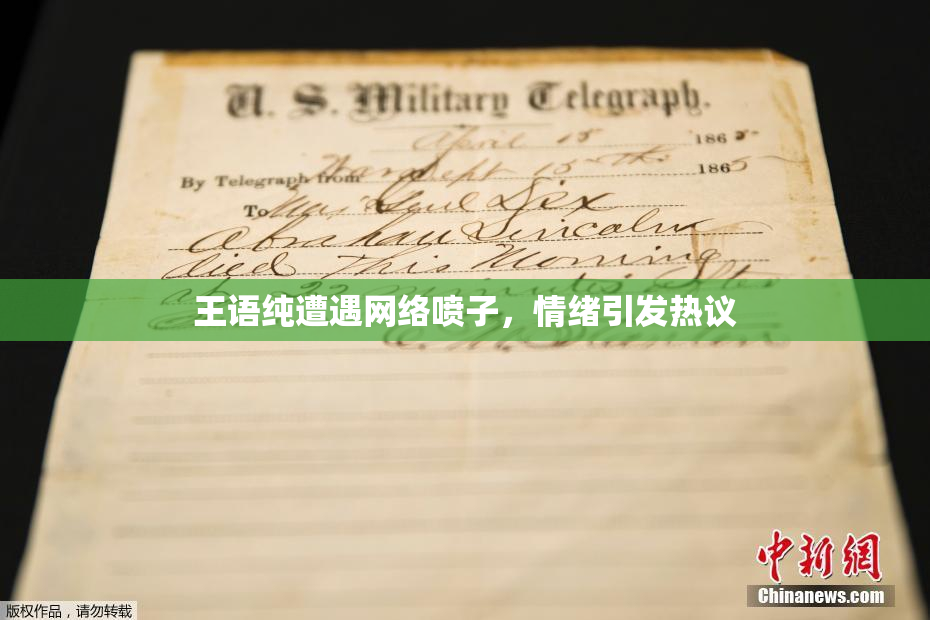 U. S. Military Telegraph.
April 15 1865
By Telegraph from War Dept 15th 1865
To Maj Genl Dix
Abraham Lincoln
died This Morning
王语纯遭遇网络喷子，情绪引发热议
中新网
Chinanews.com
版权作品，请勿转载